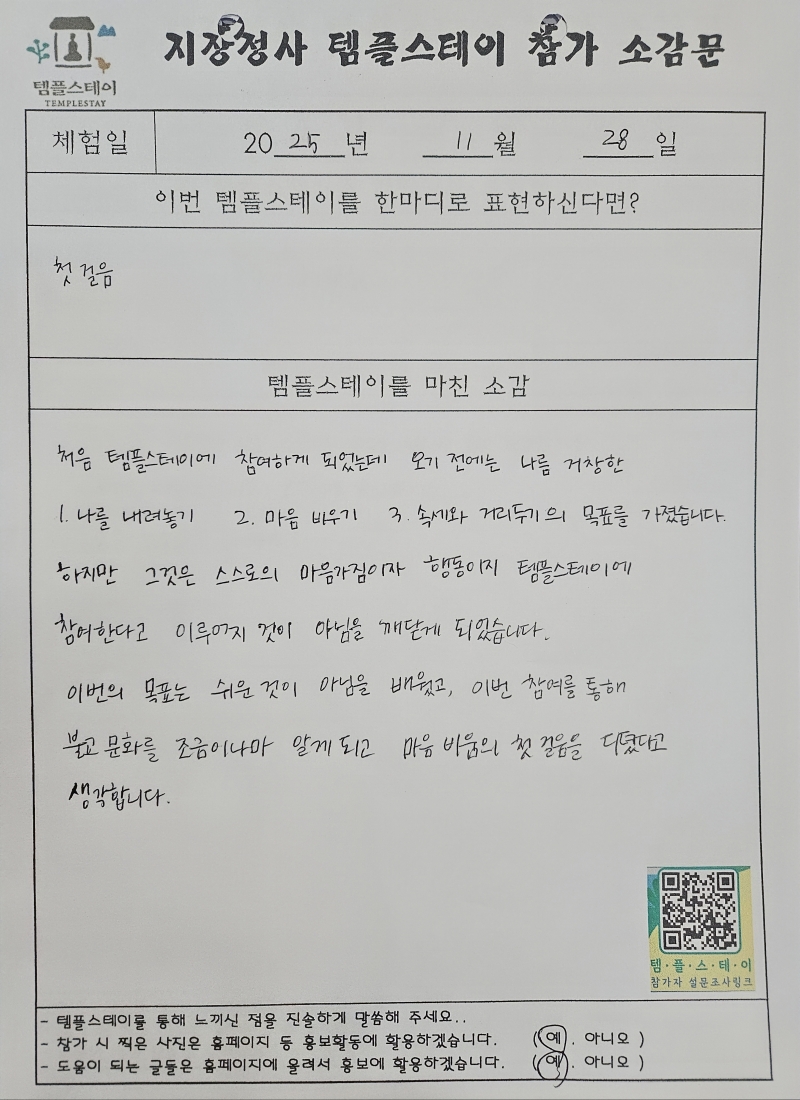 템플스테이
TEMPLESTAY
지장정사 템플스테이 참가 소감문
체험일 2025년 11월 28일
이번 템플스테이를 한마디로 표현하신다면?
첫 걸음
템플스테이를 마친 소감
처음 템플스테이에 참여하게 되었는데 오기 전에는 나름 거창한
1. 나를 내려놓기 2. 마음 비우기 3. 속세와 거리두기의 목표를 가졌습니다.
하지만 그것은 스스로의 마음가짐이자 행동이지 템플스테이에
참여한다고 이루어지 것이 아님을 깨닫게 되었습니다.
이번의 목표는 쉬운 것이 아님을 배웠고, 이번 참여를 통해
불교 문화를 조금이나마 알게 되고 마음 비움의 첫 걸음을 디뎠다고
생각합니다.
템·플·스·테·이
참가자 설문조사링크
- 템플스테이를 통해 느끼신 점을 진솔하게 말씀해 주세요..
- 참가 시 찍은 사진은 홈페이지 등 홍보활동에 활용하겠습니다. (예. 아니오 )
- 도움이 되는 글들은 홈페이지에 올려서 홍보에 활용하겠습니다. (예. 아니오 )